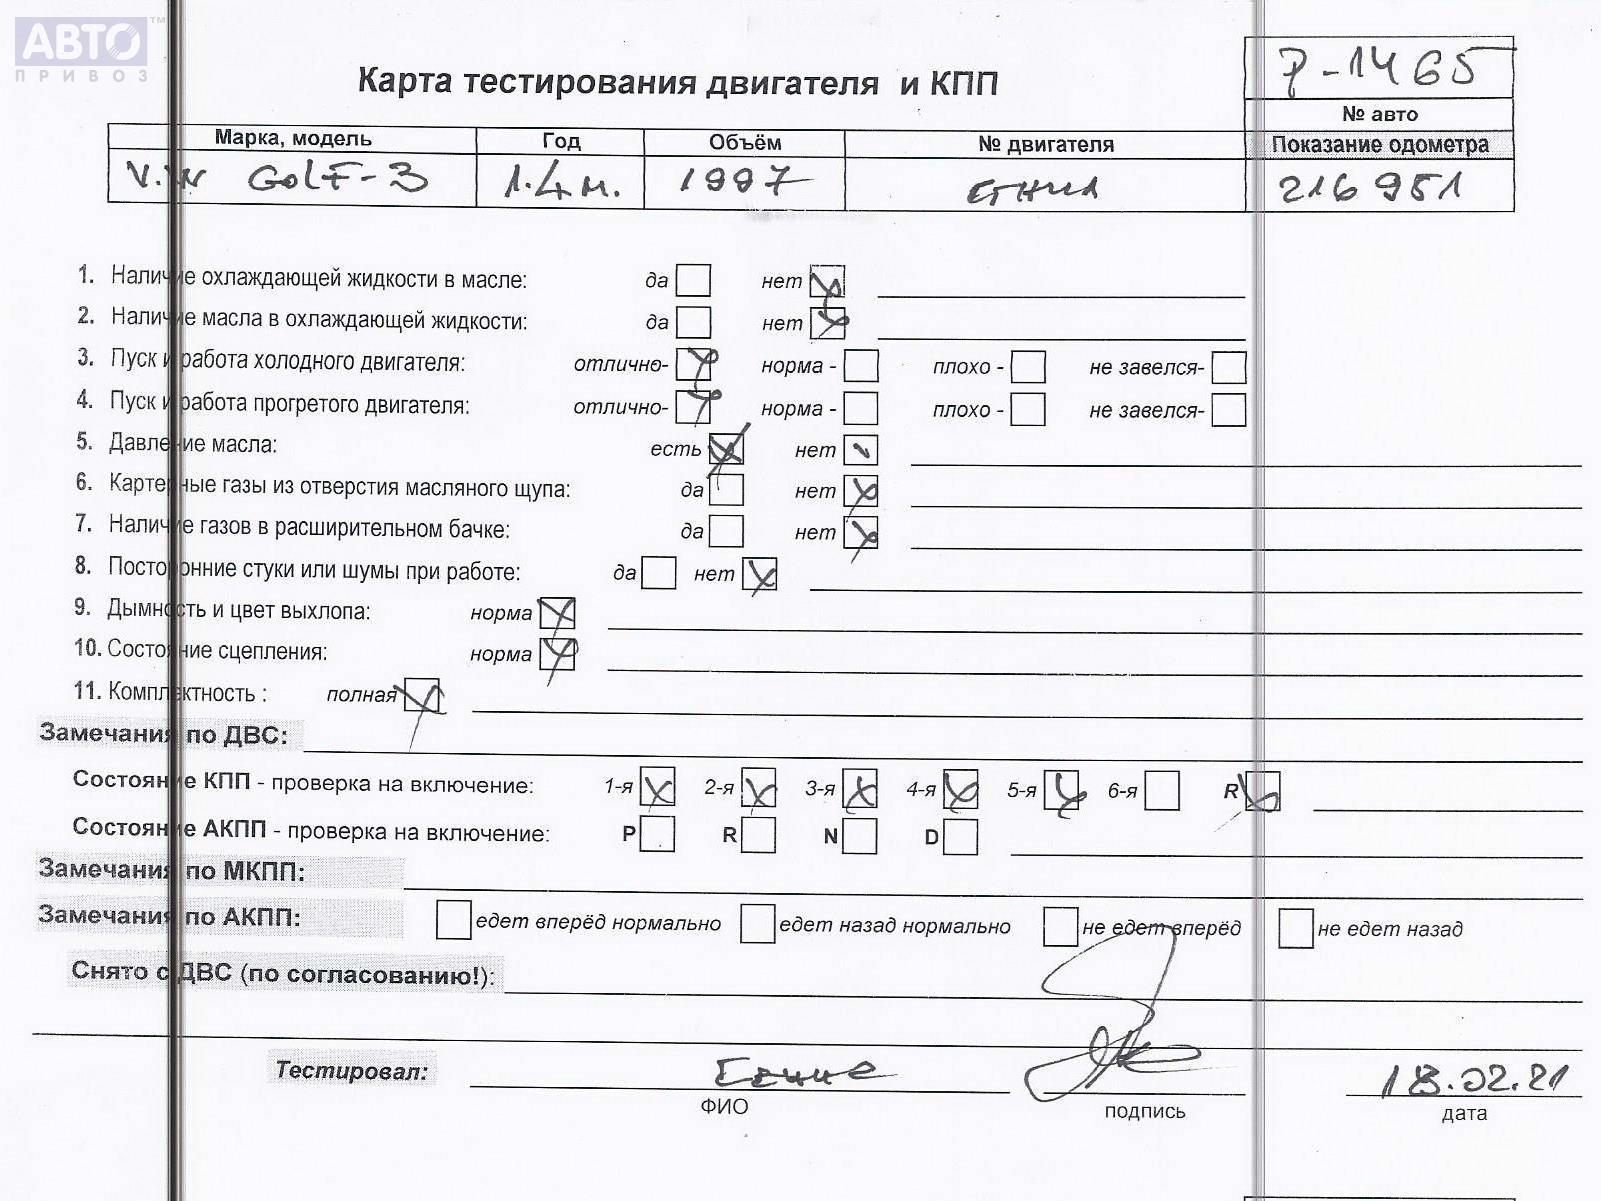 АВТО™
ПРИВОЗ
Карта тестирования двигателя и КПП
P-1465
№ авто
Марка, модель Год Объём № двигателя Показание одометра
V.W GOLF-3 1.4м. 1997 216951
1. Наличие охлаждающей жидкости в масле: да нет
2. Наличие масла в охлаждающей жидкости: да нет
3. Пуск и работа холодного двигателя: отлично- норма - плохо - не завелся-
4. Пуск и работа прогретого двигателя: отлично- норма - плохо - не завелся-
5. Давление масла: есть нет
6. Картерные газы из отверстия масляного щупа: да нет
7. Наличие газов в расширительном бачке: да нет
8. Посторонние стуки или шумы при работе: да нет
9. Дымность и цвет выхлопа: норма
10. Состояние сцепления: норма
11. Комплектность : полная
Замечания по ДВС:
Состояние КПП - проверка на включение: 1-я 2-я 3-я 4-я 5-я 6-я R
Состояние АКПП - проверка на включение: P R N D
Замечания по МКПП:
Замечания по АКПП: едет вперёд нормально едет назад нормально не едет вперёд не едет назад
Снято с ДВС (по согласованию!):
Тестировал: 18.02.21
ФИО подпись дата